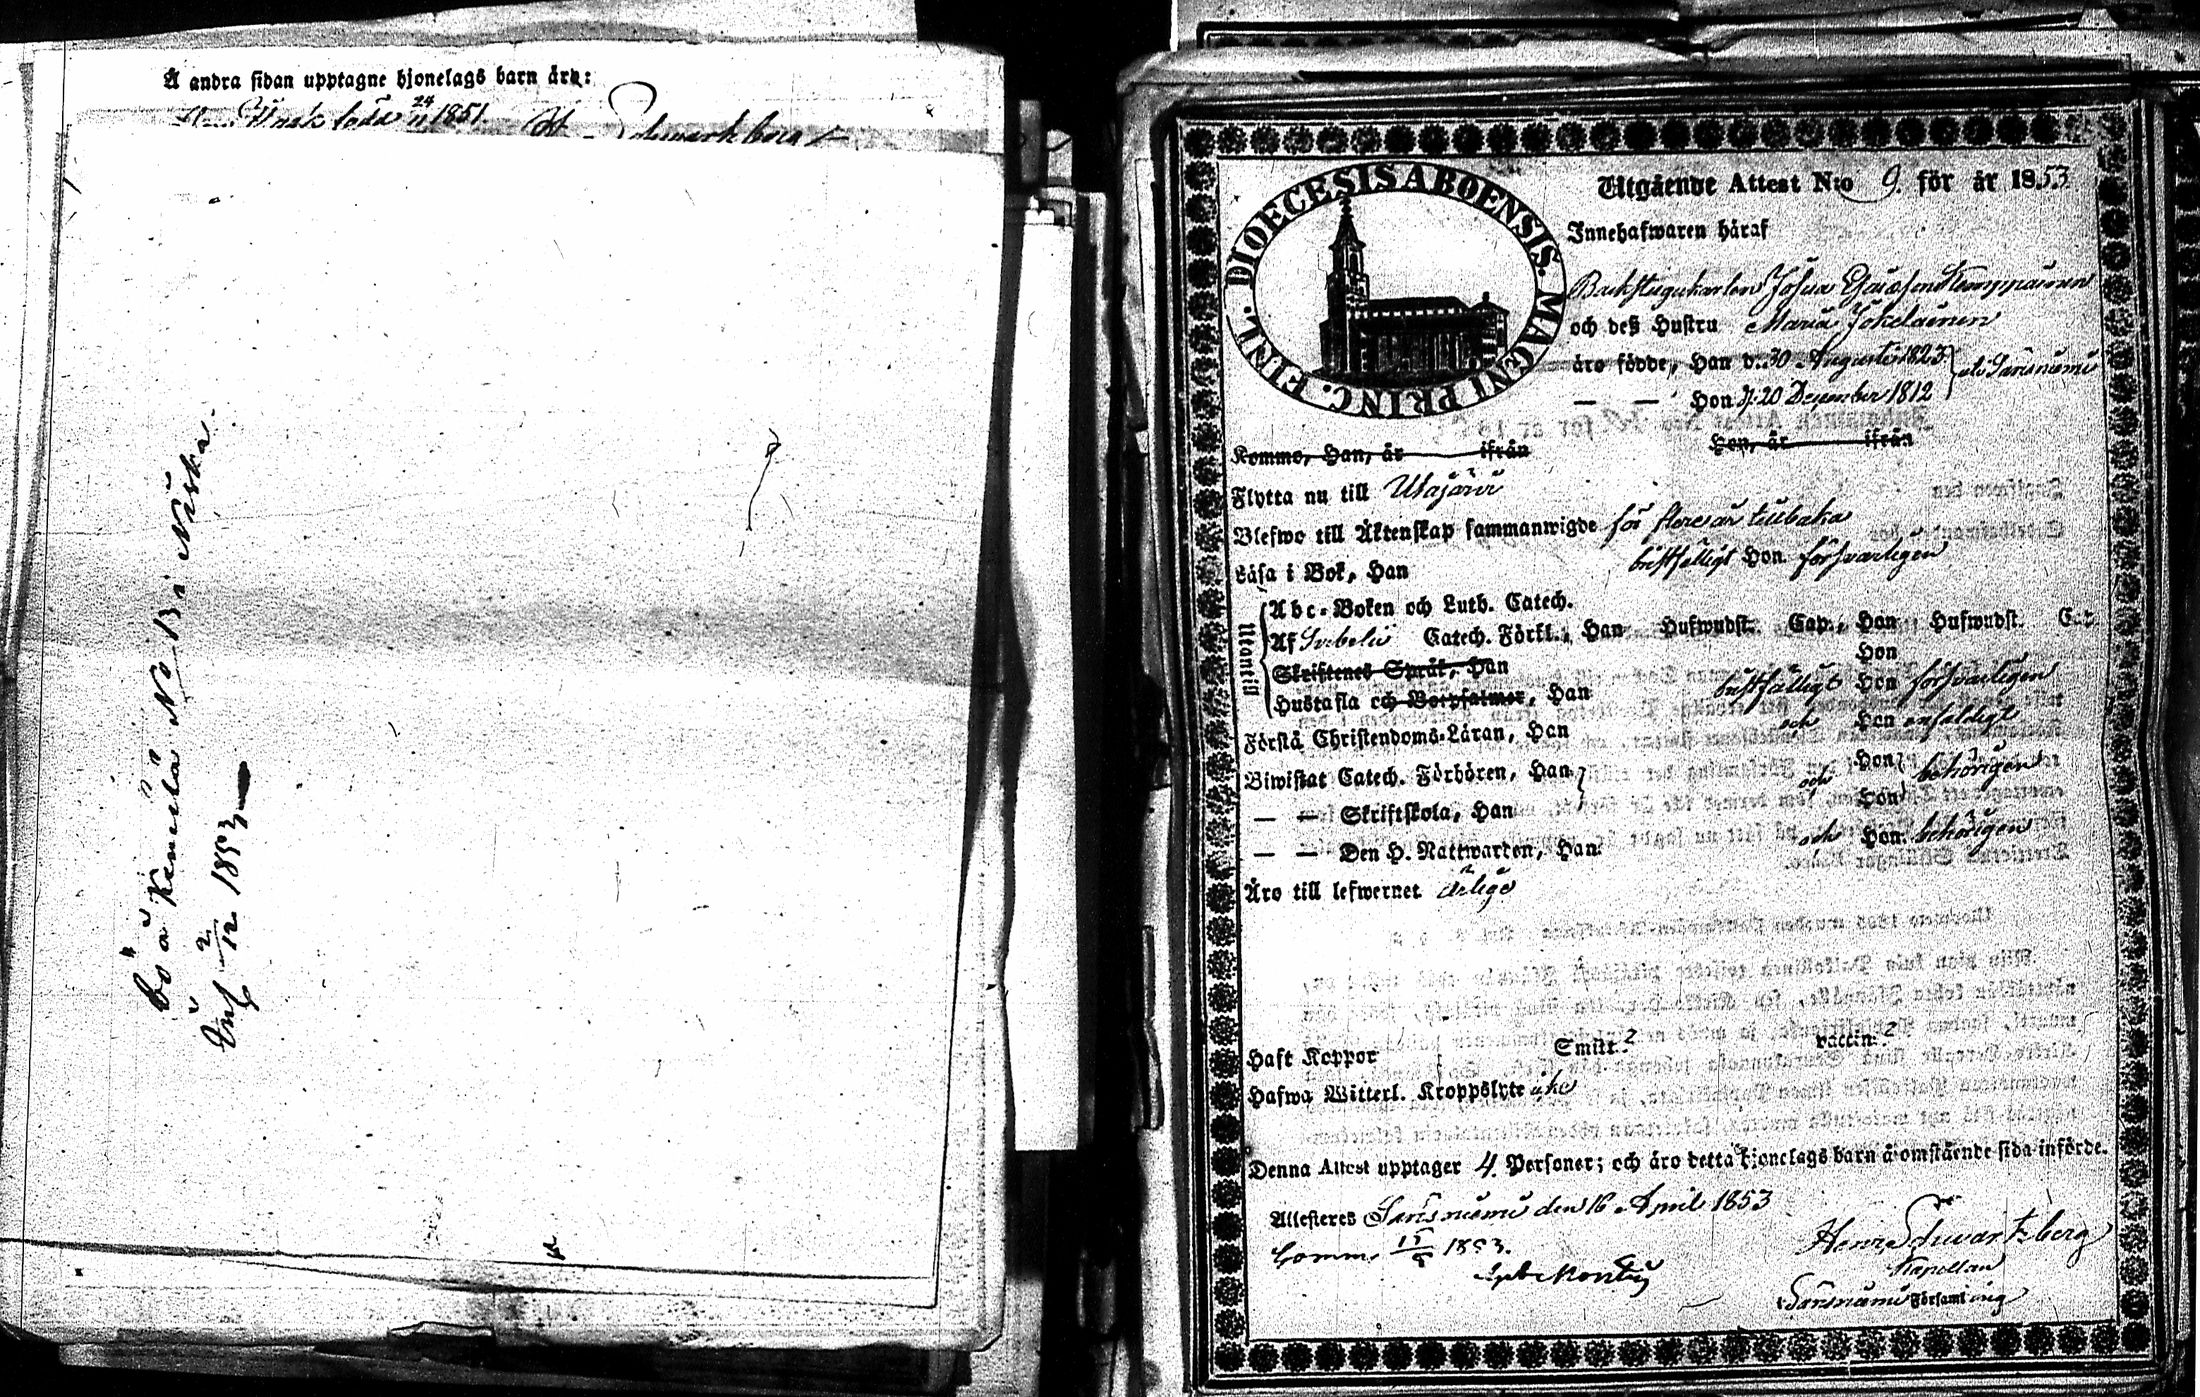 Å andra sidan upptagne hjonelags barn äro:
född 24/11 1851 H. Schwartzberg
bo å Kemilä No 13 i Niska
Inf 2/12 1853
DIOECESIS ABOENSIS. MAGNI PRINC. FINL.
Utgående Attest N:o 9. för år 1853
Innehafwaren häraf
Backstugukarlen Josua Kemppainen
och deß Hustru Maria Jokelainen
äro födde, Han d. 30 Augusti 1823
Hon d. 20 December 1812 i Säräisniemi
Kommo, Han, år ifrån Hon, år ifrån
Flytta nu till Utajärvi
Blefwo till Äktenskap sammanwigde för flere år tillbaka
Läsa i Bok, Han bristfälligt Hon försvarligen
Utantill
Abc-Boken och Luth. Catech.
Af Svebelii Catech. Förkl., Han Hufwudst. Cap., Hon Hufwudst. Cap.
Skriftenes Språk, Han Hon
Hustafla och Botpsalmer, Han bristfälligt Hon försvarligen
Förstå Christendoms-Läran, Han och Hon enfaldigt
Biwistat Catech. Förhören, Han och Hon behörigen
— — Skriftskola, Han Hon
— — Den H. Nattwarden, Han och Hon behörigen
Äro till lefwernet ärlige
Haft Koppor Smitt. 2 vaccin. 2
Hafwa Witterl. Kroppslyte icke
Denna Attest upptager 4 Personer; och äro detta hjonelags barn å omstående sida införde.
Attesteras Säräisniemi den 16 April 1853
Henr. Schwartzberg
Comm. 1853.
Kapellan
Säräisniemi Församling